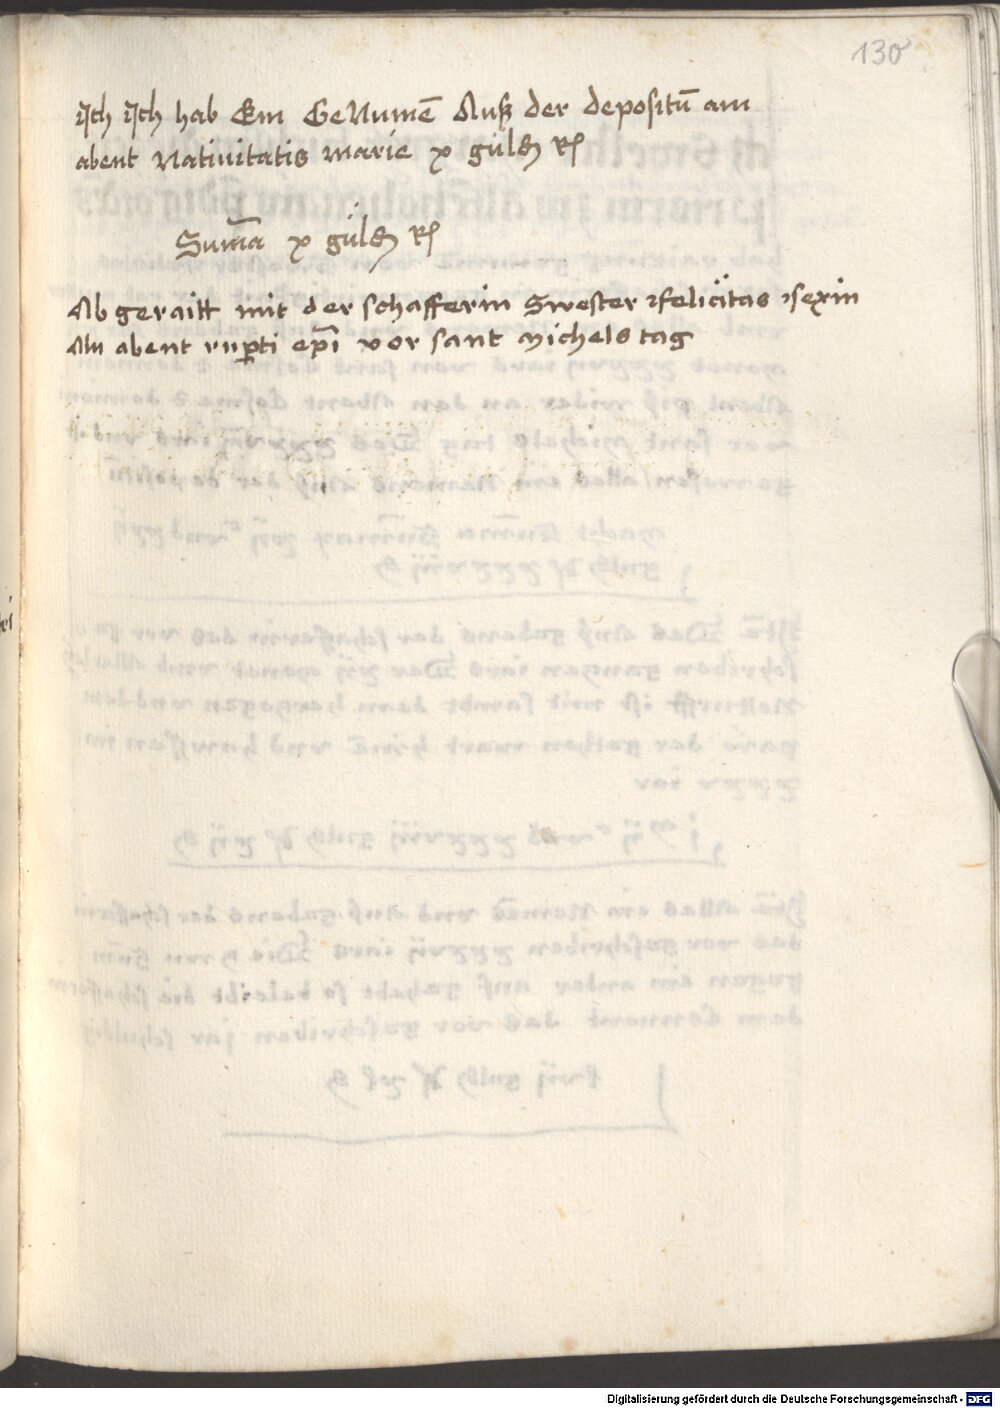 130
Jch Jch hab Ein GeNumē Auß der depositū am
abent Natiuitatis marie x güldē Rʃ
Sum̄a x güldē Rʃ
Ab geraitt mit der schafferin Swester felicitas sexin
An abent rup̱ti ep̄i vor sant Michels tag
Digitalisierung gefördert durch die Deutsche Forschungsgemeinschaft - DFG